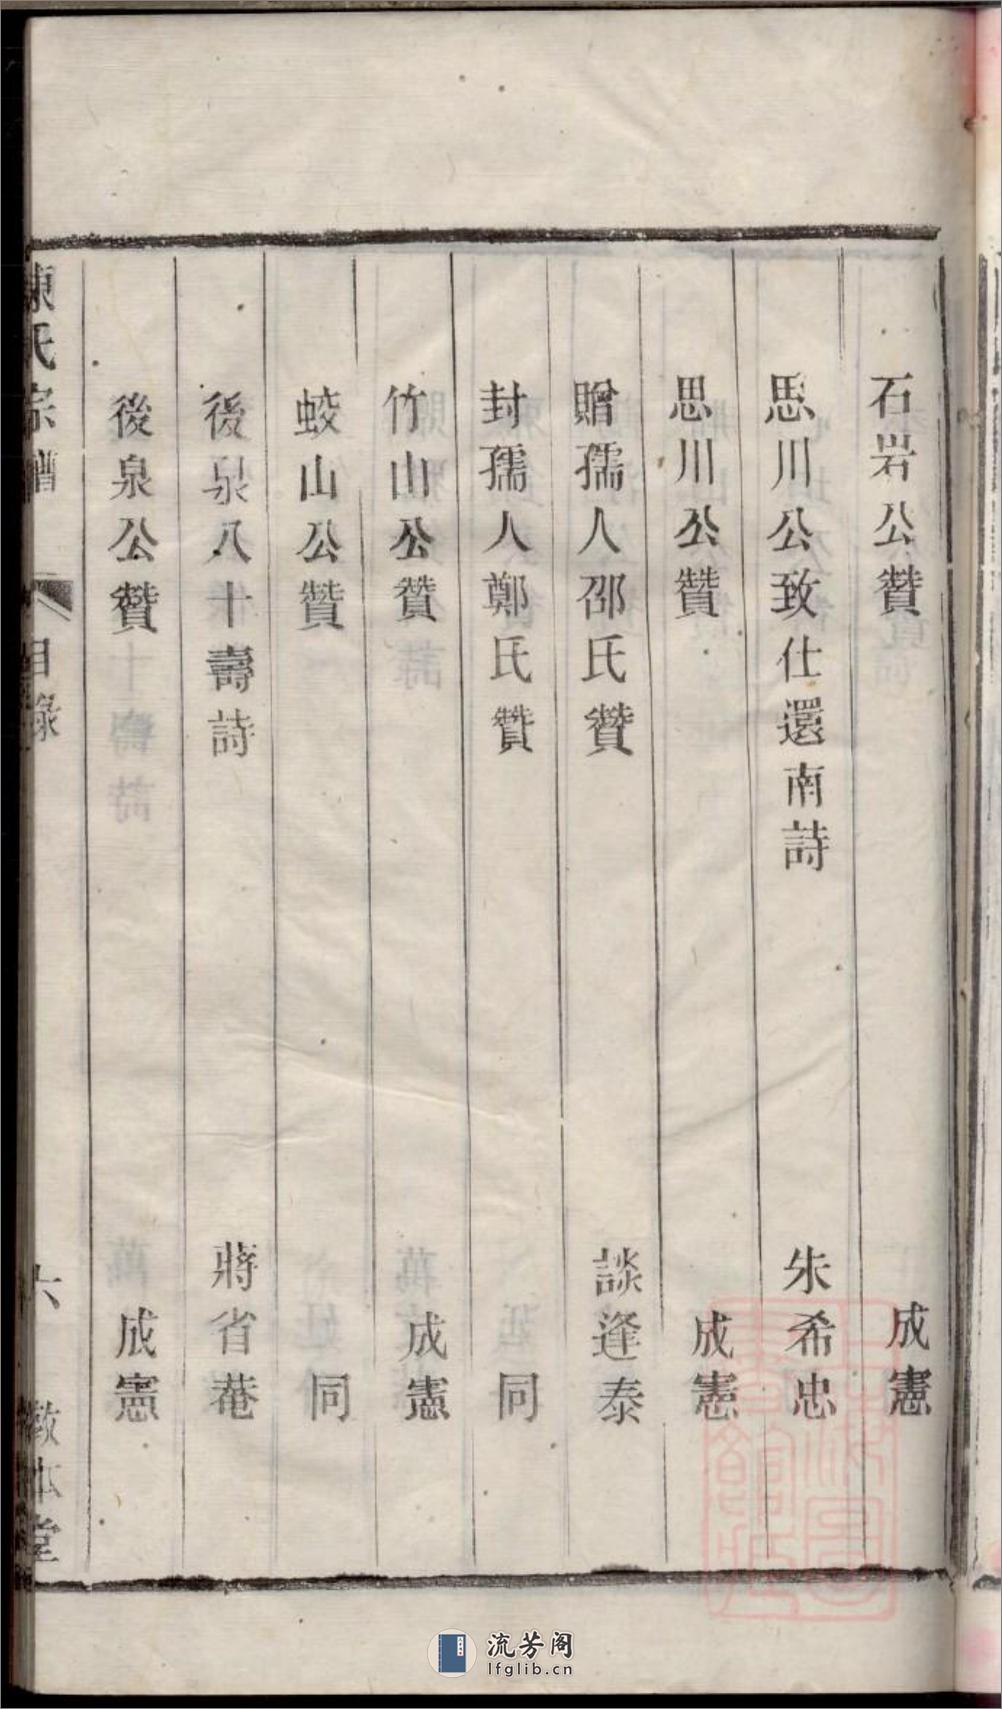 石岩公贊 成憲
思川公致仕還南詩 朱希忠
思川公贊 成憲
贈孺人邵氏贊 談逢泰
封孺人鄭氏贊 同
竹山公贊 成憲
蛟山公贊 同
後泉八十壽詩 蔣省菴
後泉公贊 成憲
陳氏宗譜 目錄 六 敦本堂
流芳阁
lfglib.cn